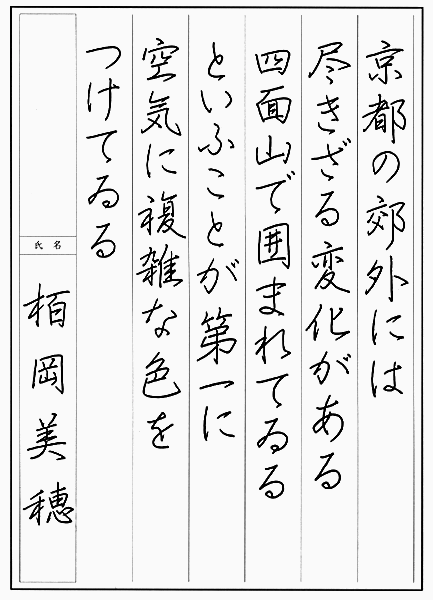 京都の郊外には
尽きざる変化がある
四面山で囲まれてゐる
といふことが第一に
空気に複雑な色を
つけてゐる
氏名
栢岡美穂